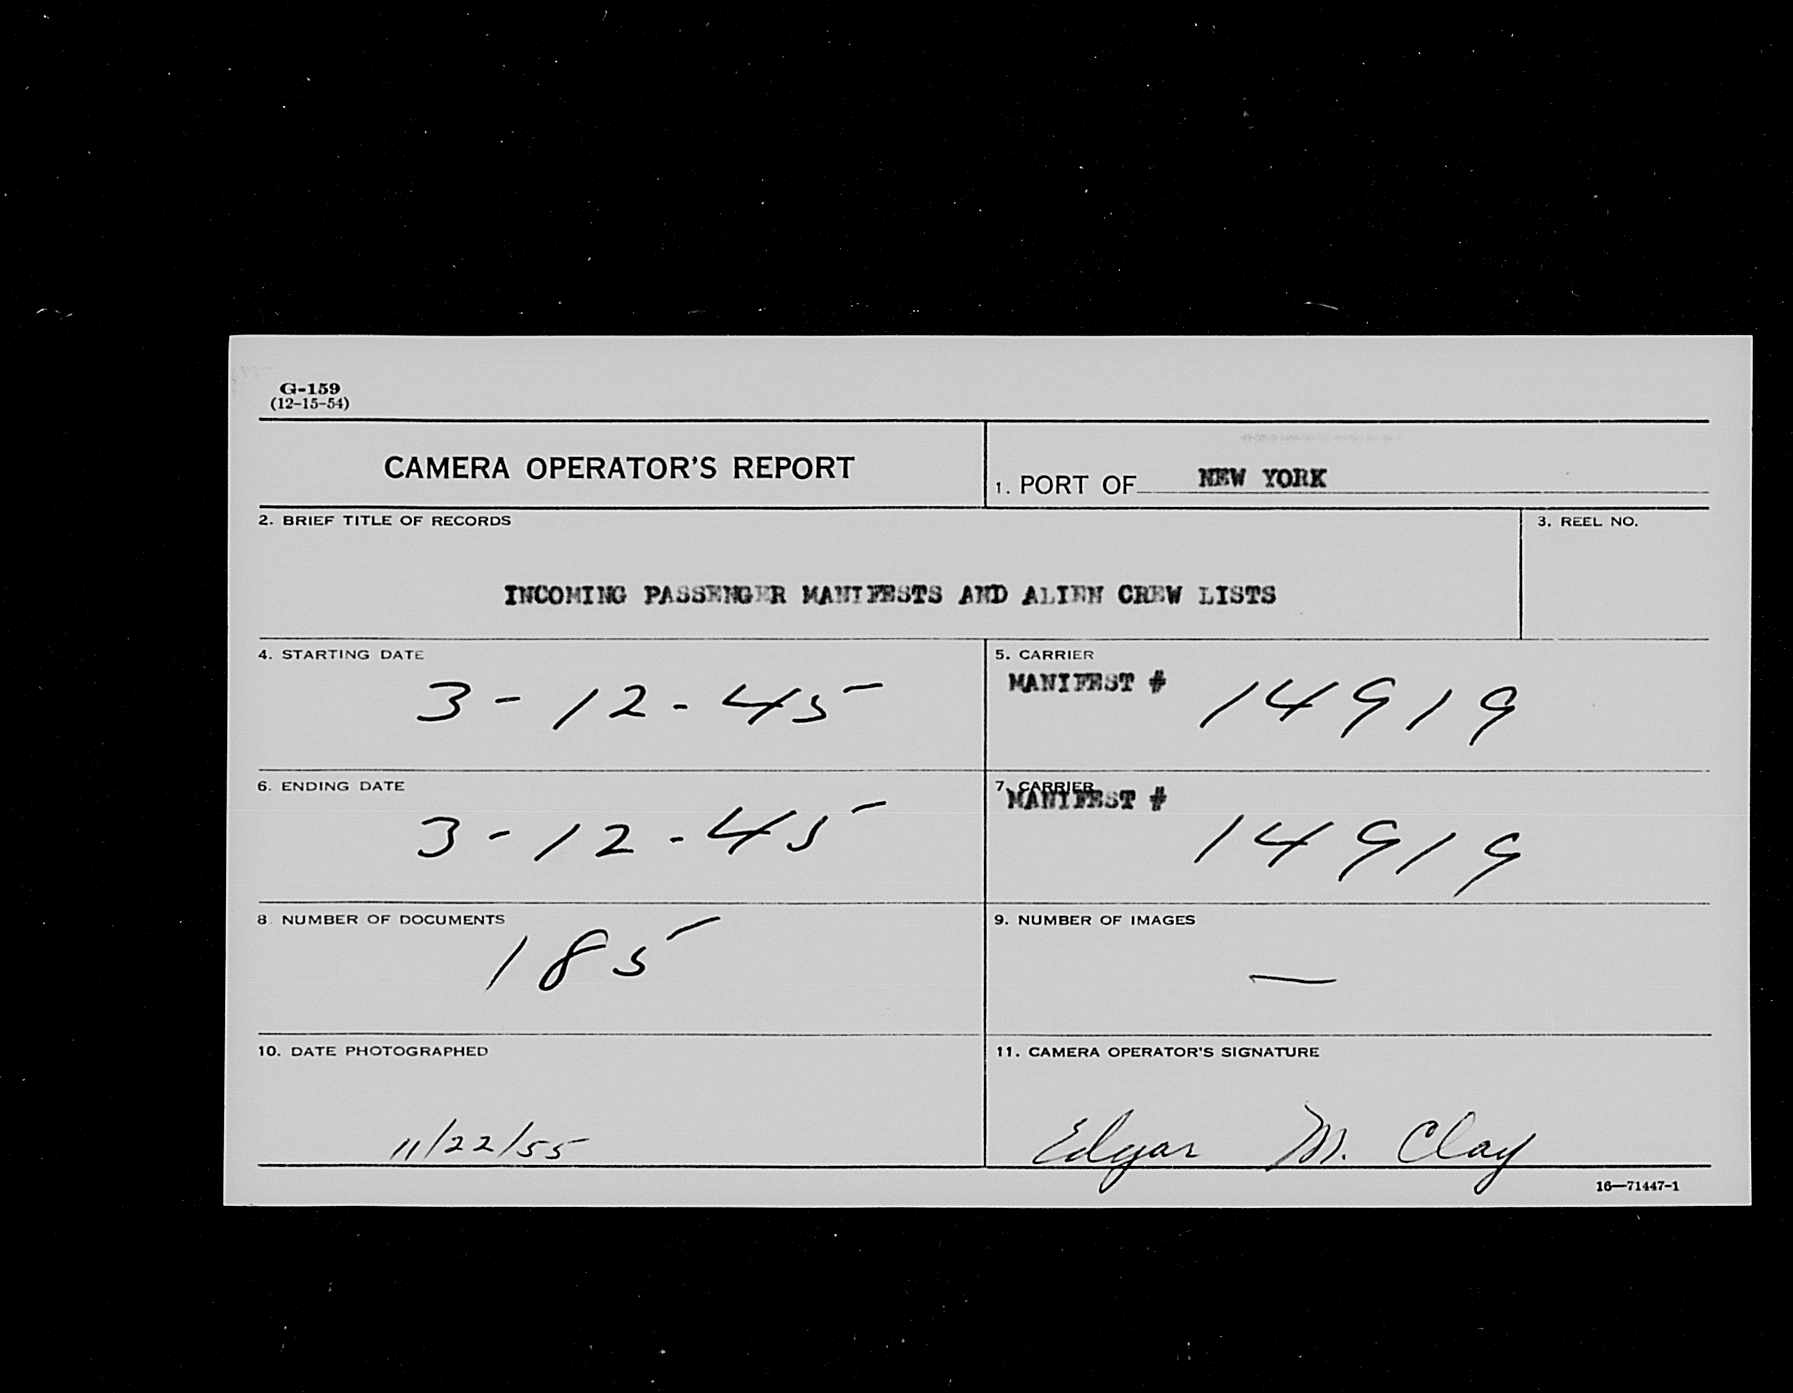 G-159
(12-15-54)
CAMERA OPERATOR'S REPORT
1. PORT OF NEW YORK
2. BRIEF TITLE OF RECORDS
3. REEL NO.
INCOMING PASSENGER MANIFESTS AND ALIEN CREW LISTS
4. STARTING DATE
3-12-45
5. CARRIER
MANIFEST # 14919
6. ENDING DATE
3-12-45
7. CARRIER
MANIFEST # 14919
8. NUMBER OF DOCUMENTS
185
9. NUMBER OF IMAGES
—
10. DATE PHOTOGRAPHED
11/22/55
11. CAMERA OPERATOR'S SIGNATURE
Edgar M. Clay
16—71447-1